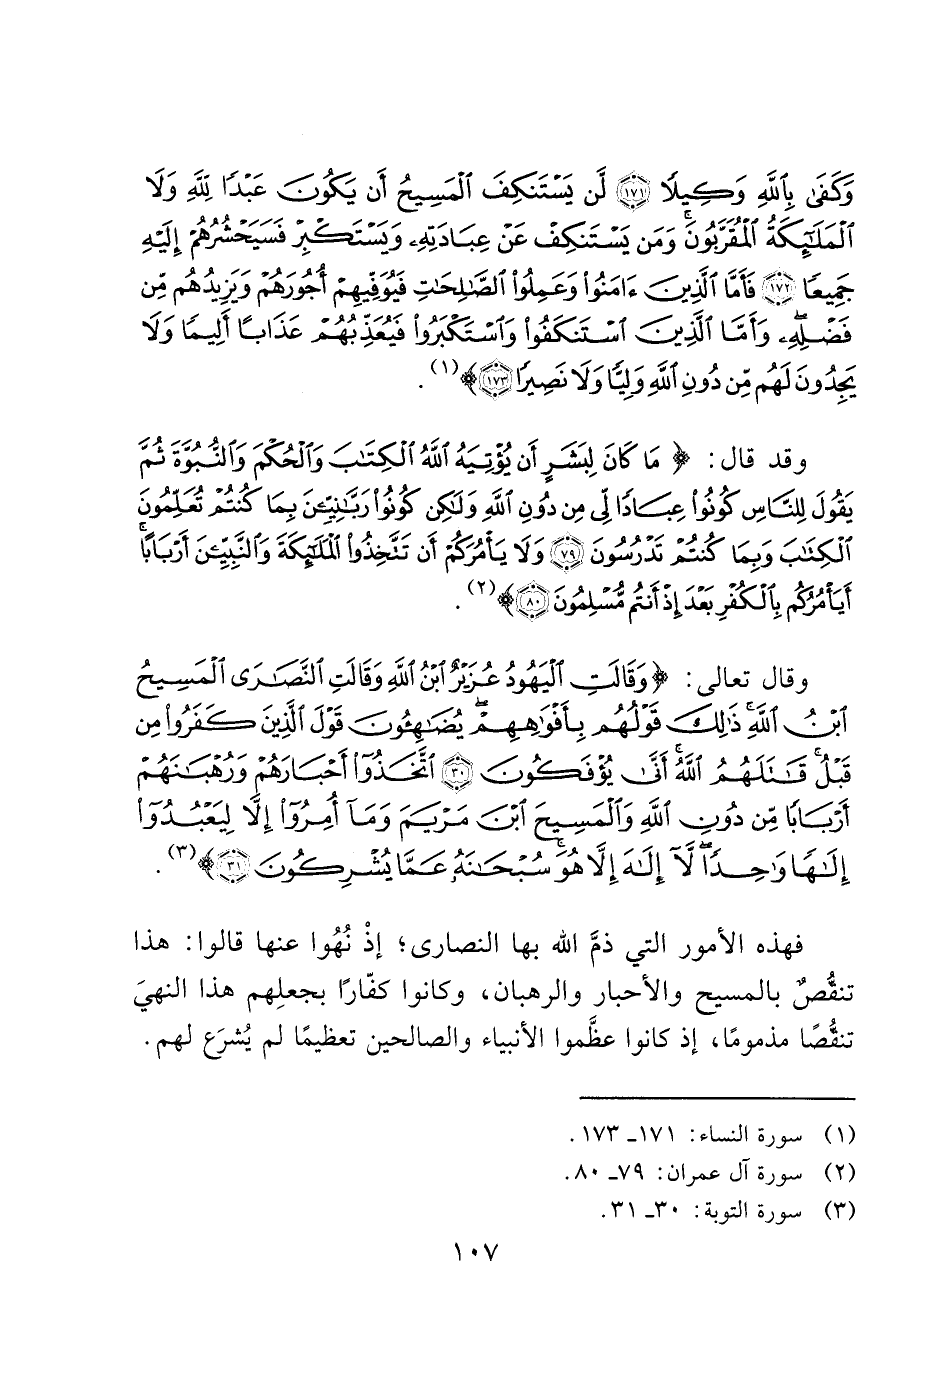 وَكَفَىٰ بِٱللَّهِ وَكِيلًا ﴿١٧١﴾ لَّن يَسْتَنكِفَ ٱلْمَسِيحُ أَن يَكُونَ عَبْدًا لِّلَّهِ وَلَا
ٱلْمَلَٰٓئِكَةُ ٱلْمُقَرَّبُونَ ۚ وَمَن يَسْتَنكِفْ عَنْ عِبَادَتِهِۦ وَيَسْتَكْبِرْ فَسَيَحْشُرُهُمْ إِلَيْهِ
جَمِيعًا ﴿١٧٢﴾ فَأَمَّا ٱلَّذِينَ ءَامَنُوا۟ وَعَمِلُوا۟ ٱلصَّٰلِحَٰتِ فَيُوَفِّيهِمْ أُجُورَهُمْ وَيَزِيدُهُم مِّن
فَضْلِهِۦ ۖ وَأَمَّا ٱلَّذِينَ ٱسْتَنكَفُوا۟ وَٱسْتَكْبَرُوا۟ فَيُعَذِّبُهُمْ عَذَابًا أَلِيمًا وَلَا
يَجِدُونَ لَهُم مِّن دُونِ ٱللَّهِ وَلِيًّا وَلَا نَصِيرًا ﴿١٧٣﴾﴾(١).
وقد قال: ﴿مَا كَانَ لِبَشَرٍ أَن يُؤْتِيَهُ ٱللَّهُ ٱلْكِتَٰبَ وَٱلْحُكْمَ وَٱلنُّبُوَّةَ ثُمَّ
يَقُولَ لِلنَّاسِ كُونُوا۟ عِبَادًا لِّى مِن دُونِ ٱللَّهِ وَلَٰكِن كُونُوا۟ رَبَّٰنِيِّـۧنَ بِمَا كُنتُمْ تُعَلِّمُونَ
ٱلْكِتَٰبَ وَبِمَا كُنتُمْ تَدْرُسُونَ ﴿٧٩﴾ وَلَا يَأْمُرَكُمْ أَن تَتَّخِذُوا۟ ٱلْمَلَٰٓئِكَةَ وَٱلنَّبِيِّـۧنَ أَرْبَابًا ۗ
أَيَأْمُرُكُم بِٱلْكُفْرِ بَعْدَ إِذْ أَنتُم مُّسْلِمُونَ ﴿٨٠﴾﴾(٢).
وقال تعالى: ﴿وَقَالَتِ ٱلْيَهُودُ عُزَيْرٌ ٱبْنُ ٱللَّهِ وَقَالَتِ ٱلنَّصَٰرَى ٱلْمَسِيحُ
ٱبْنُ ٱللَّهِ ۖ ذَٰلِكَ قَوْلُهُم بِأَفْوَٰهِهِمْ ۖ يُضَٰهِـُٔونَ قَوْلَ ٱلَّذِينَ كَفَرُوا۟ مِن
قَبْلُ ۚ قَٰتَلَهُمُ ٱللَّهُ ۚ أَنَّىٰ يُؤْفَكُونَ ﴿٣٠﴾ ٱتَّخَذُوٓا۟ أَحْبَارَهُمْ وَرُهْبَٰنَهُمْ
أَرْبَابًا مِّن دُونِ ٱللَّهِ وَٱلْمَسِيحَ ٱبْنَ مَرْيَمَ وَمَآ أُمِرُوٓا۟ إِلَّا لِيَعْبُدُوٓا۟
إِلَٰهًا وَٰحِدًا ۖ لَّآ إِلَٰهَ إِلَّا هُوَ ۚ سُبْحَٰنَهُۥ عَمَّا يُشْرِكُونَ ﴿٣١﴾﴾(٣).
فهذه الأمور التي ذمَّ الله بها النصارى؛ إذْ نُهُوا عنها قالوا: هذا
تنقُّصٌ بالمسيح والأحبار والرهبان، وكانوا كفّارًا بجعلِهم هذا النهيَ
تنقُّصًا مذمومًا، إذ كانوا عظَّموا الأنبياء والصالحين تعظيمًا لم يُشرَع لهم.
(١) سورة النساء: ١٧١ـ ١٧٣.
(٢) سورة آل عمران: ٧٩ـ ٨٠.
(٣) سورة التوبة: ٣٠ـ ٣١.
١٠٧